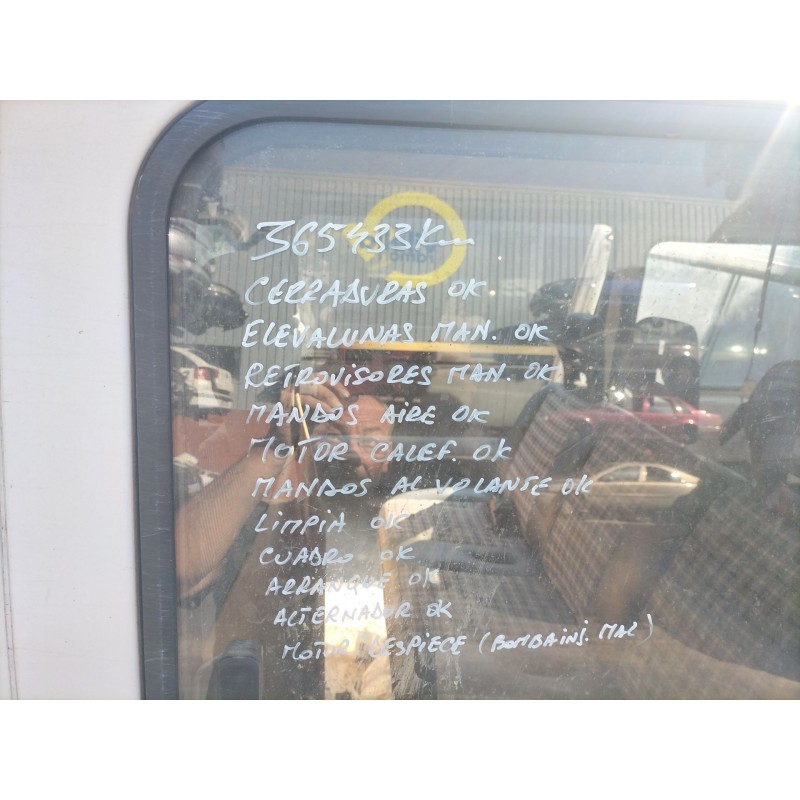 365433 Km
CERRADURAS OK
ELEVALUNAS MAN. OK
RETROVISORES MAN. OK
MANDOS AIRE OK
MOTOR CALEF. OK
MANDOS AL VOLANTE OK
LIMPIA OK
CUADRO OK
ARRANQUE OK
ALTERNADOR OK
MOTOR DESPIECE (BOMBA INJ. MAL)